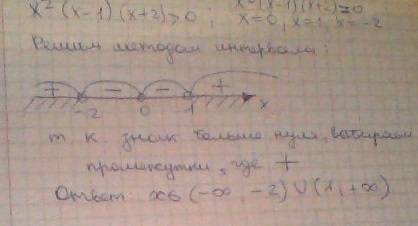 x²(x-1)(x+2)>0 ; x²(x-1)(x+2)=0
x=0, x=1, x=-2
Решим методом интервала:
+ - - +
-2 0 1 x
т.к. знак больше нуля, выбираем
промежутки, где +
Ответ: x∈(-∞, -2)∪(1, +∞)